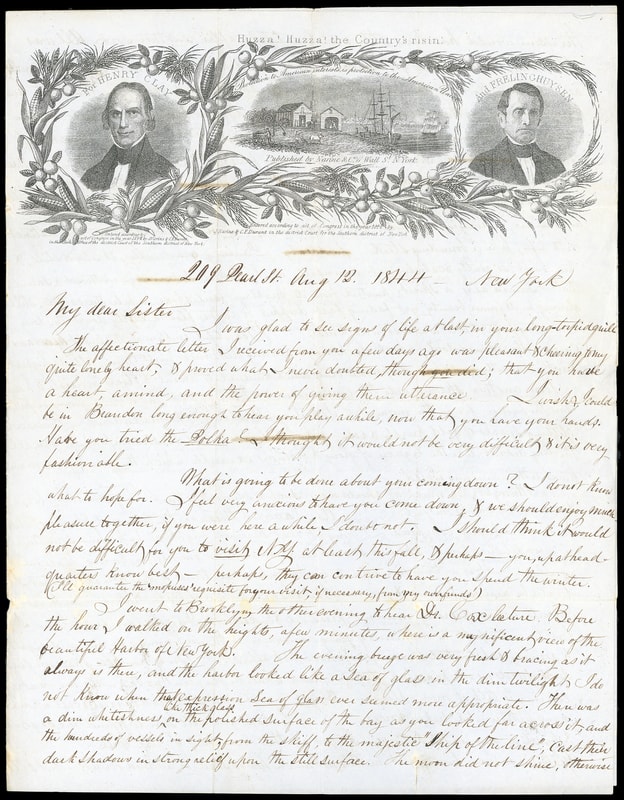 Huzza! Huzza! the Country's risin'.
For HENRY CLAY
And FRELINGHUYSEN.
Published by Narine & Co. 11 Wall St. N. York
Entered according to act of Congress in the year 1844 by
J. Narine & C. F. Durant in the district Court for the Southern district of New York
209 Pearl St. Aug 12. 1844 - New York
My dear Sister
I was glad to see signs of life at last, in your long-torpid quill
The affectionate letter I received from you a few days ago was pleasant & cheering to my
quite lonely heart, & proved what I never doubted, though you did; that you have
a heart, a mind, and the power of giving them utterance. I wish I could
be in Brandon long enough to hear you play awhile, now that you have your hands.
Have you tried the Polka? I thought it would not be very difficult & it is very
fashionable.
What is going to be done about your coming down? I do not know
what to hope for. I feel very anxious to have you come down, & we should enjoy much
pleasure together, if you were here awhile, I doubt not. I should think it would
not be difficult for you to visit N.Y. at least this fall, & perhaps - you, up at head-
quarters know best - perhaps, they can contrive to have you spend the winter.
(I'll guarantee the "mopuses" requisite for your visit if necessary, from my own funds)
I went to Brooklyn, the other evening to hear Dr. Cox lecture. Before
the hour I walked on the heights, a few minutes, where is a magnificent view of the
beautiful Harbor of New York. The evening breeze was very fresh & bracing as it
always is there, and the harbor looked like a sea of glass in the dim twilight I do
not know when that expression sea of glass ever seemed more appropriate. There was
a dim whitishness, like thick glass on the polished surface of the bay as you looked far across it, and
the hundreds of vessels in sight, from the skiff, to the majestic "Ship of the line", cast their
dark shadows in strong relief upon the still surface. The moon did not shine, otherwise